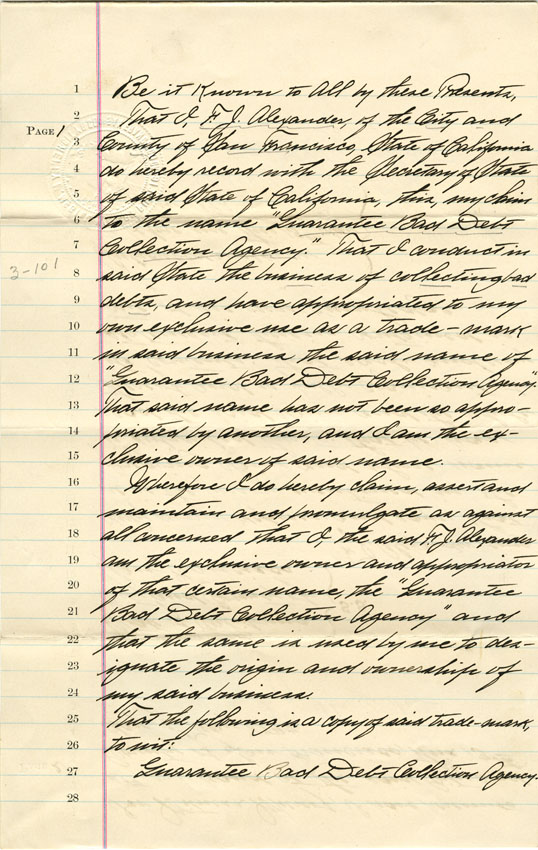 1 Be it Known to All by these Presents,
2 That I, F. J. Alexander, of the City and
PAGE 1
3 County of San Francisco, State of California
4 do hereby record with the Secretary of State
5 of said State of California, this, my claim
6 to the name "Guarantee Bad Debt
7 Collection Agency." That I conduct in
3-101
8 said State the business of collecting bad
9 debts, and have appropriated to my
10 own exclusive use as a trade-mark
11 in said business the said name of
12 "Guarantee Bad Debt Collection Agency".
13 That said name has not been so appro-
14 priated by another, and I am the ex-
15 clusive owner of said name.
16 Wherefore I do hereby claim, assert and
17 maintain and promulgate as against
18 all concerned that I, the said F. J. Alexander
19 am the exclusive owner and appropriator
20 of that certain name, the "Guarantee
21 Bad Debt Collection Agency" and
22 that the same is used by me to des-
23 ignate the origin and ownership of
24 my said business.
25 That the following is a copy of said trade-mark,
26 to wit:
27 Guarantee Bad Debt Collection Agency.
28